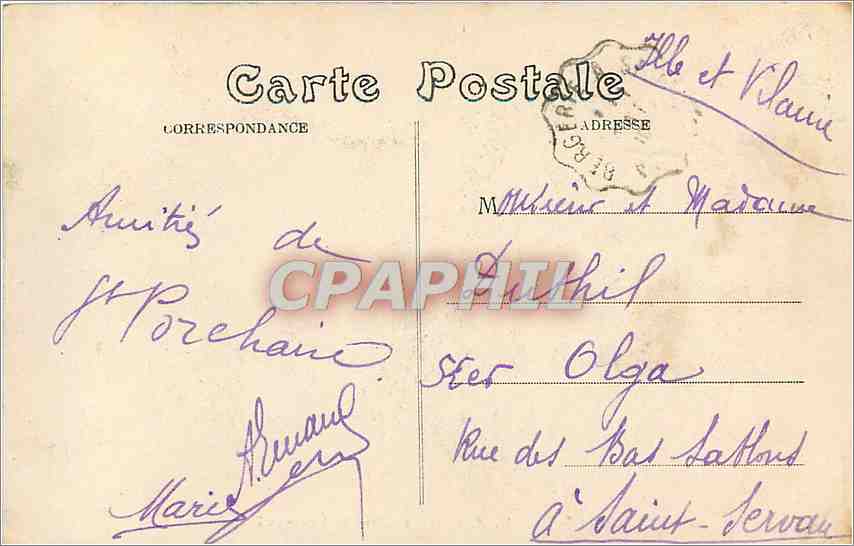 Carte Postale
CORRESPONDANCE
ADRESSE
BERGERAC
Ille et Vilaine
Amitiés de
St Porchaire
Armand
Marie
Monsieur et Madame
Duthil
Ster Olga
Rue des Bas Sablons
à Saint-Servan
CPAPHIL